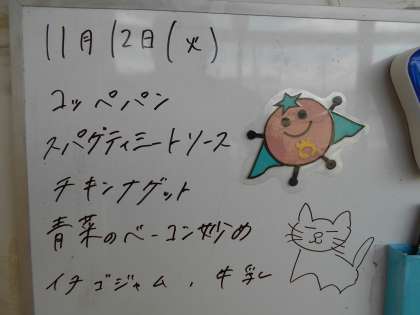 11月12日(火)
コッペパン
スパゲティミートソース
チキンナゲット
青菜のベーコン炒め
イチゴジャム、牛乳